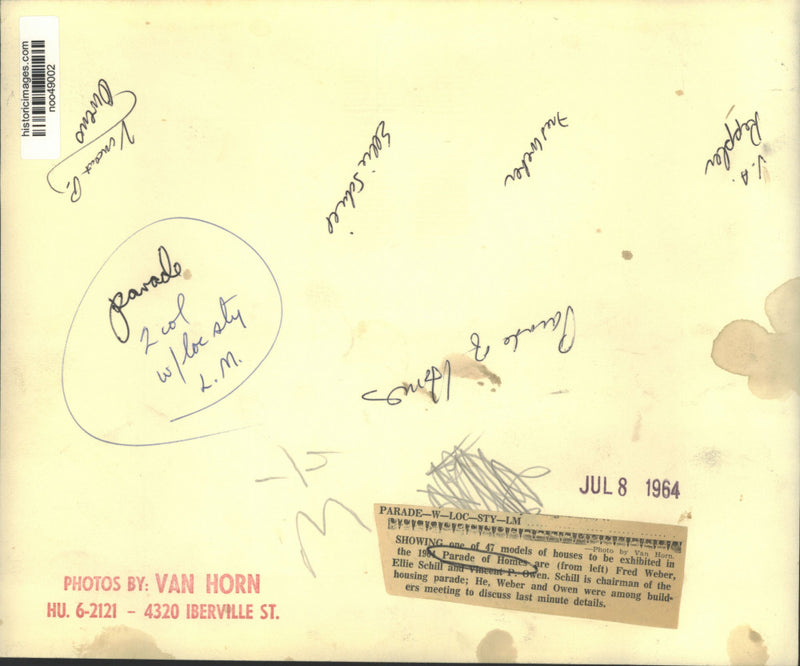 historicimages.com
noo49002
Owens
Vincent P.
Ellie Schill
Fred Weber
J. A.
Keppler
parade
2 col
w/loc sty
L.M.
Parade of
Homes
JUL 8 1964
PARADE—W—LOC—STY—LM
—Photo by Van Horn.
SHOWING one of 47 models of houses to be exhibited in
the 1964 Parade of Homes are (from left) Fred Weber,
Ellie Schill and Vincent P. Owen. Schill is chairman of the
housing parade; He, Weber and Owen were among build-
ers meeting to discuss last minute details.
PHOTOS BY: VAN HORN
HU. 6-2121 – 4320 IBERVILLE ST.